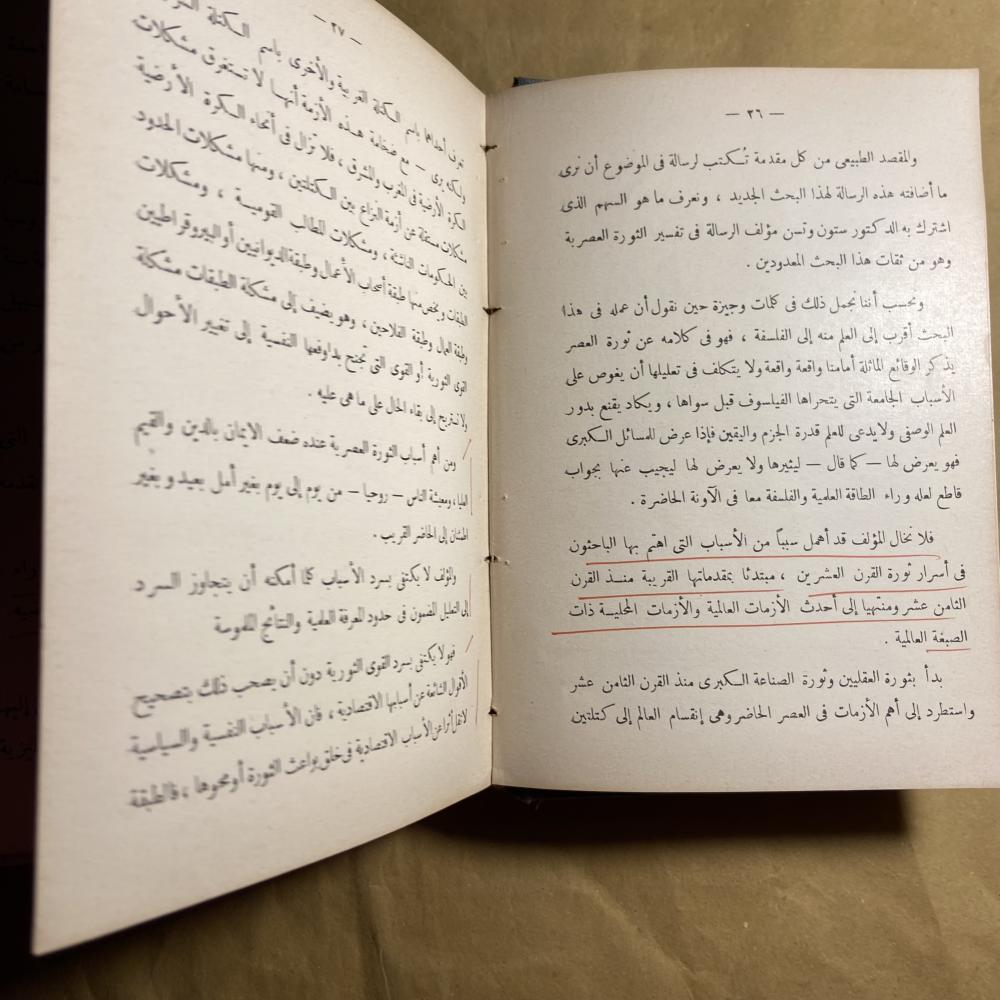 — ٢٦ —
والمقصد الطبيعى من كل مقدمة تُكتب لرسالة فى الموضوع أن نرى
ما أضافته هذه الرسالة لهذا البحث الجديد ، ونعرف ما هو السهم الذى
اشترك به الدكتور ستون وتسن مؤلف الرسالة فى تفسير الثورة العصرية
وهو من ثقات هذا البحث المعدودين .
ونحسب أننا نجمل ذلك فى كلمات وجيزة حين نقول أن عمله فى هذا
البحث أقرب إلى العلم منه إلى الفلسفة ، فهو فى كلامه عن ثورة العصر
يذكر الوقائع الماثلة أمامنا واقعة واقعة ولا يتكلف فى تعليلها أن يغوص على
الأسباب الجامعة التى يتحراها الفيلسوف قبل سواها ، ويكاد يقنع بدور
العلم الوصفى ولا يدعى للعلم قدرة الجزم واليقين فإذا عرض للمسائل الكبرى
فهو يعرض لها — كما قال — ليثيرها ولا يعرض لها ليجيب عنها بجواب
قاطع لعله وراء الطاقة العلمية والفلسفة معا فى الآونة الحاضرة .
فلا نخال المؤلف قد أهمل سبباً من الأسباب التى اهتم بها الباحثون
فى أسرار ثورة القرن العشرين ، مبتدئا بمقدماتها القريبة منذ القرن
الثامن عشر ومنتهيا إلى أحدث الأزمات العالمية والأزمات المحلية ذات
الصبغة العالمية .
بدأ بثورة العقليين وثورة الصناعة الكبرى منذ القرن الثامن عشر
واستطرد إلى أهم الأزمات فى العصر الحاضر وهى إنقسام العالم إلى كتلتين
— ٢٧ —
تعرف أحداها باسم الكتلة الغربية والأخرى باسم الكتلة
ولكنه يرى — مع ضخامة هذه الأزمة أنها لا تستغرق مشكلات
الكرة الأرضية فى المغرب والمشرق ، فلا تزال فى أنحاء الكرة الأرضية
مشكلات مستقلة عن أزمة النزاع بين الكتلتين ، ومنها مشكلات الحدود
بين الحكومات الناشئة ، ومشكلات المطالب القومية ، ومشكلات
الطبقات ويخص منها طبقة أصحاب الأعمال وطبقة الديوانيين أو البيروقراطيين
وطبقة العمال وطبقة الفلاحين ، وهو يضيف إلى مشكلة الطبقات مشكلة
القوى الثورية أو القوى التى تجنح بدوافعها النفسية إلى تغيير الأحوال
ولا تستريح إلى بقاء الحال على ما هى عليه .
ومن أهم أسباب الثورة العصرية عنده ضعف الايمان بالدين والقيم
العليا ، ومعيشة الناس — روحيا — من يوم إلى يوم بغير أمل بعيد وبغير
اطمئنان إلى الحاضر القريب .
والمؤلف لا يكتفى بسرد الأسباب كلما أمكنه أن يتجاوز السرد
إلى التعليل المضمون فى حدود المعرفة العلمية والنتائج الملموسة
فهو لا يكتفى بسرد القوى الثورية دون أن يصحب ذلك بتصحيح
الأقوال الشائعة عن أسبابها الاقتصادية ، فان الأسباب النفسية والسياسية
لا تقل أثرا عن الأسباب الاقتصادية فى خلق بواعث الثورة أو محوها ، فالطبقة